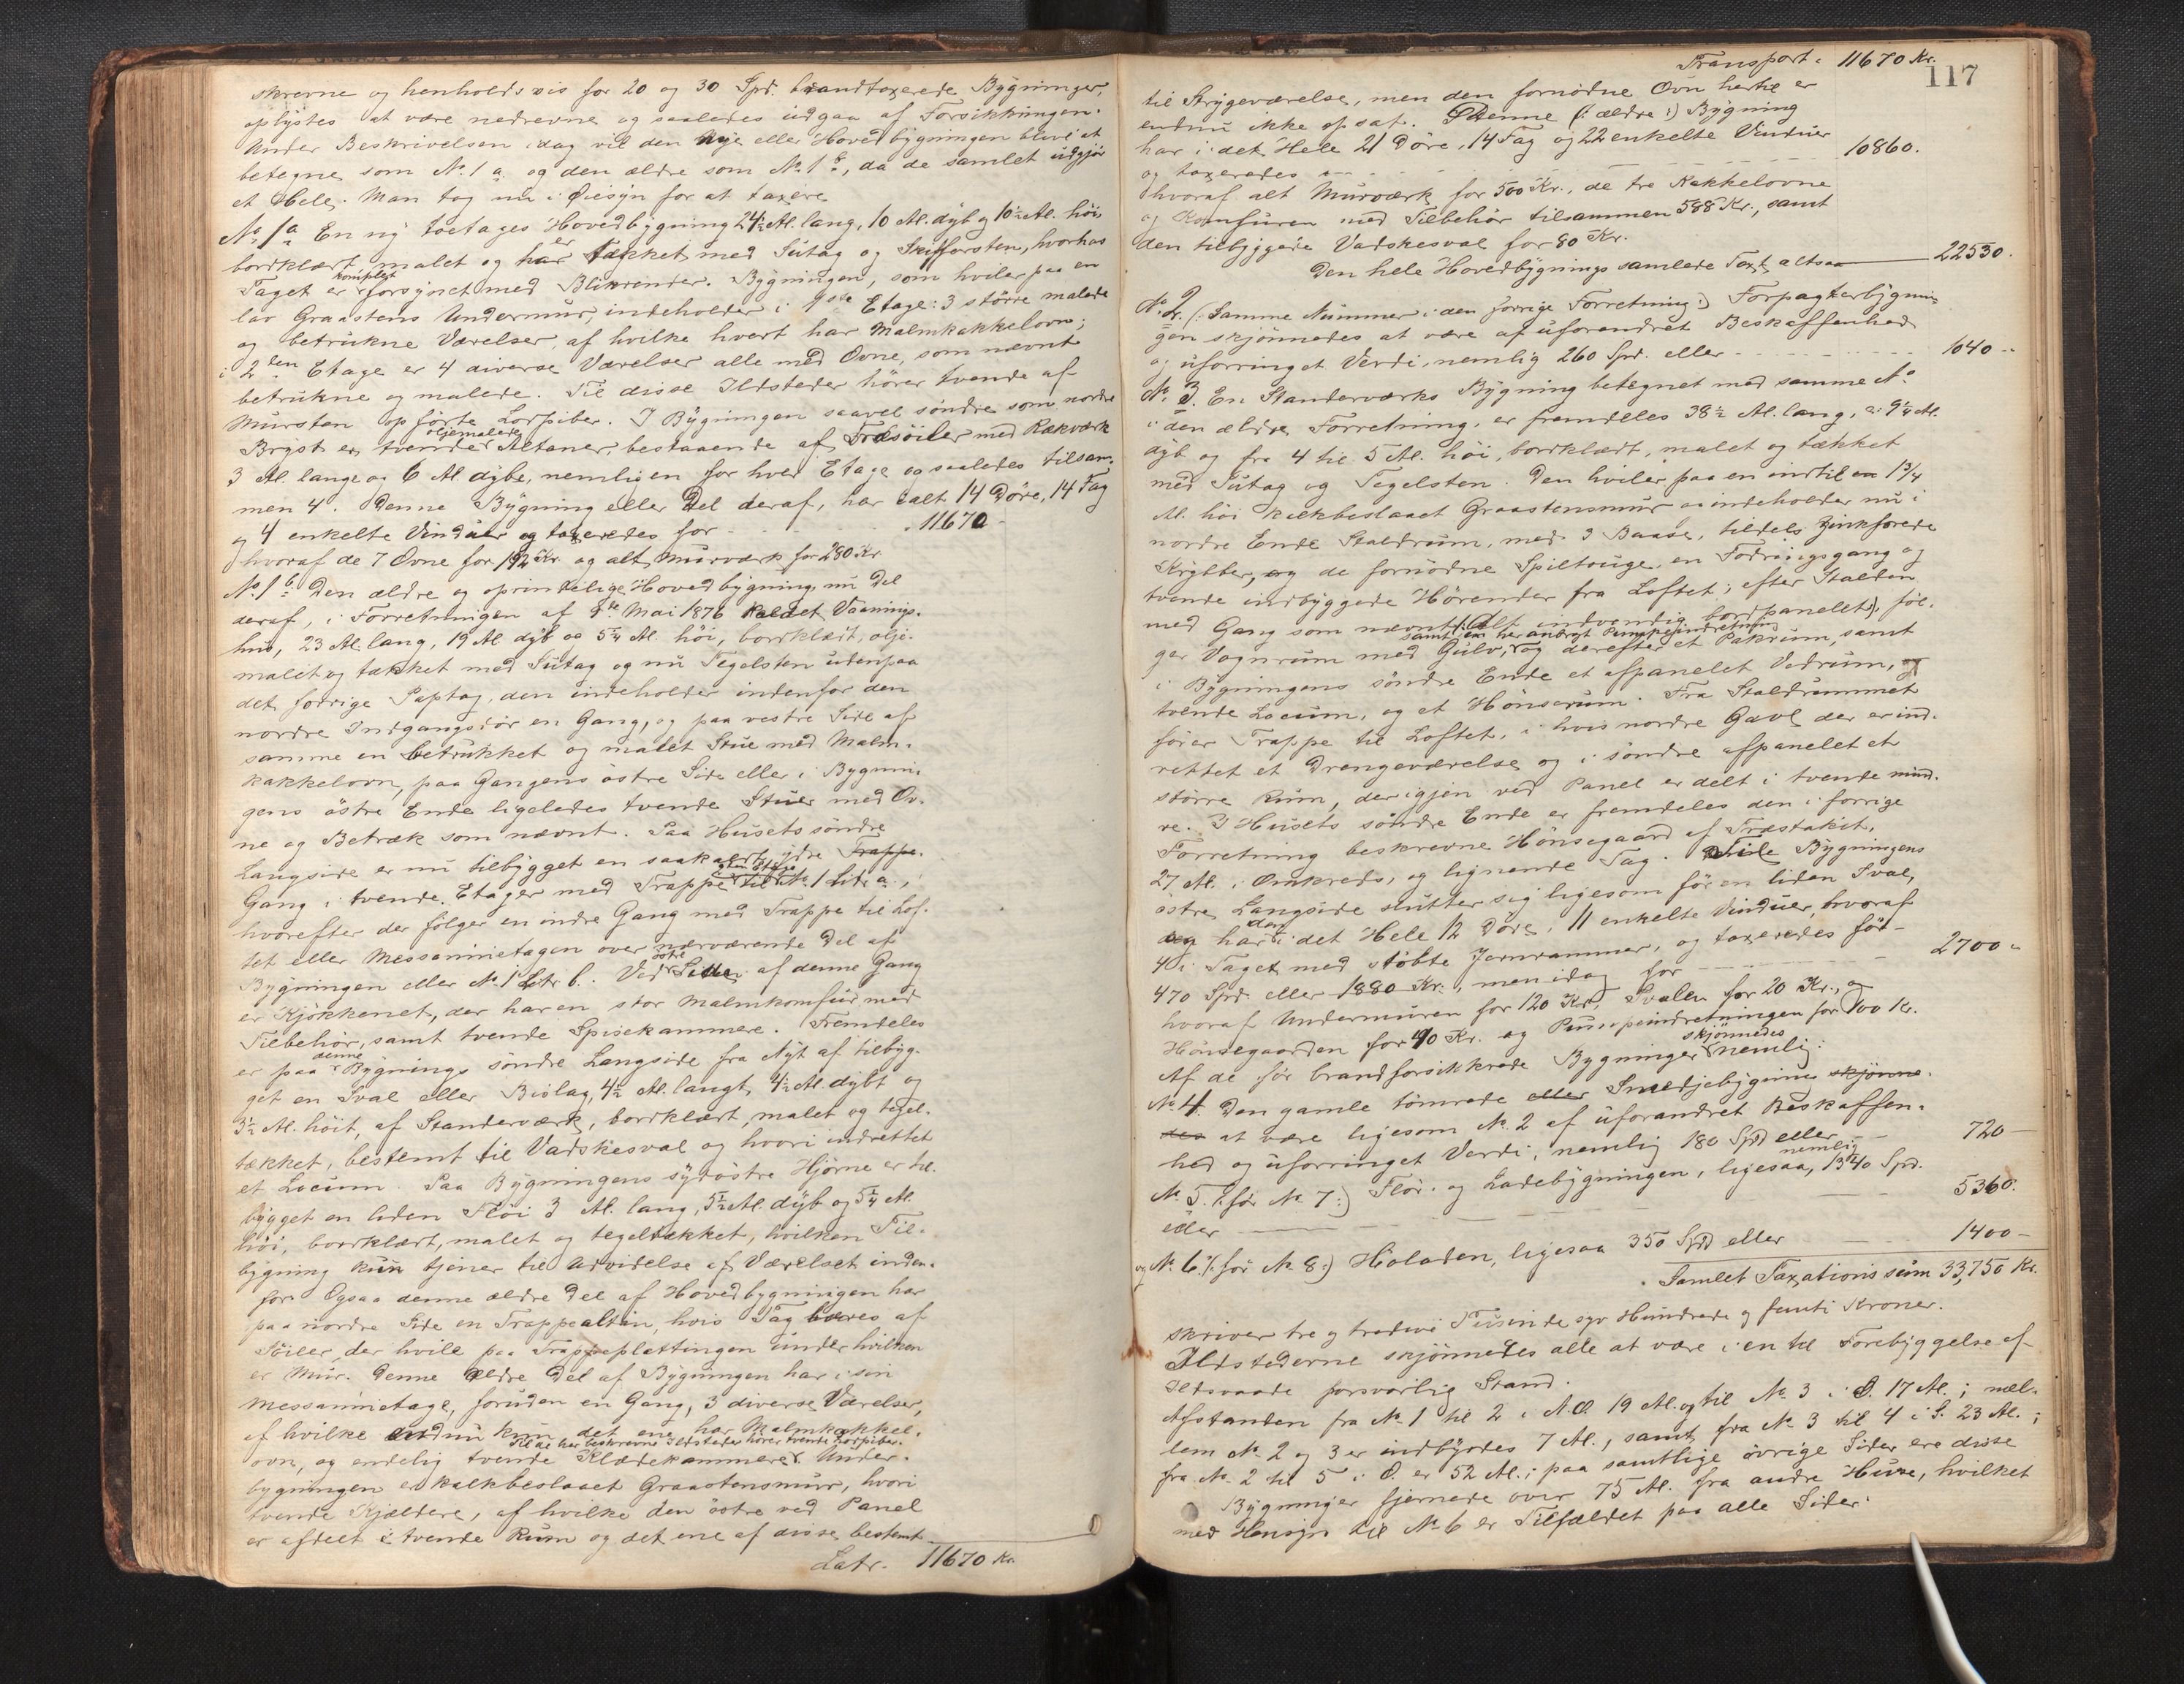 skrevne og henholdsvis for 20 og 30 Spd. brandtaxerede Bygninger,
oplystes at være nedrevne og saaledes udgaa af Forsikkringen.
Under Beskrivelsen idag vil den nye eller Hovedbygningen blive at
betegne som No. 1 a og den ældre som No. 1 b, da de samlet udgjör
et Hele. Man tog nu i Öiesyn for at taxere
No. 1 a En ny toetages Hovedbygning 24 1/2 Al. lang, 10 Al. dyb og 10 1/2 Al. höi,
bordklædt, malet og er tækket med Sutag og Skifforsten, hvorhos
Taget er komplet forsynet med Blikrender. Bygningen, som hviler paa en
lav Graastens Undermur, indeholder i 1ste Etage: 3 större malede
og betrukne Værelser, af hvilke hvert har Malmkakkelovn;
i 2den Etage er 4 diverse Værelser alle med Ovne, som nævnt
betrukne og malede. Til disse Ildsteder hörer tvende af
Mursten opförte Lorpiber. I Bygningen saavel söndre som nordre
Bryst er tvende oljemalede Altaner, bestaaende af Træsöiler med Rækværk
3 Al. lange og 6 Al dybe, nemlig en for hver Etage og saaledes tilsam-
men 4. Denne Bygning eller Del deraf, har ialt 14 Döre, 14 Fag
og 4 enkelte Vinduer og taxeredes for - - - 11670 -
hvoraf de 7 Ovne for 192 Kr. og alt Murværk for 280 Kr
No. 1 b Den ældre og oprindelige Hovedbygning, nu Del
deraf, i Forretningen af 8de Mai 1876 kaldet Vaanings-
hus, 23 Al. lang, 19 Al dyb og 5 1/4 Al. höi, bordklædt, olje-
malet og tækket med Sutag og nu Tegelsten udenpaa
det forrige Paptag, den indeholder indenfor den
nordre Indgangsdör en Gang, og paa vestre Side af
samme en betrukket og malet Stue med Malm-
kakkelovn, paa Gangens östre Side eller i Bygnin-
gens östre Ende ligeledes tvende Stuer med Ov-
ne og Betræk som nævnt. Paa Husets söndre
Langside er nu tilbygget en saakaldt ydre Trappe-
Gang i tvende Etager med Trappe til No. 1 Litr. a.,
hvorefter der fölger en indre Gang med Trappe til Lof-
tet eller Messanietagen over nærværende Del af
Bygningen eller No. 1 Litr. b. Ved östre Side af denne Gang
er Kjökkenet, der har en stor Malmkomfur med
Tilbehör, samt tvende Spisekammere. Fremdeles
er paa denne Bygnings söndre Langside fra Nyt af tilbyg-
get en Sval eller Bislag, 4 1/2 Al. langt, 4 1/2 Al. dybt og
3 1/2 Al. höit, af Standerværk, bordklædt, malet og tegel-
tækket, bestemt til Vadskesval og hvori indrettet
et Locum. Paa Bygningens sydöstre Hjörne er til-
bygget en liden Flöi 3 Al. lang, 5 1/2 Al. dyb og 5 1/4 Al.
höi, bordklædt, malet og tegeltækket, hvilken Til-
bygning kun tjener til Udvidelse af Værelset inden-
for. Ogsaa denne ældre Del af Hovedbygningen har
paa nordre Side en Trappealtan, hvis Tag bæres af
Söiler, der hvile paa Trappeplattingen under hvilken
er Mur. Denne ældre Del af Bygningen har i sin
Messanietage, foruden en Gang, 3 diverse Værelser,
af hvilke endnu kun det ene har Malmkakkel-
ovn, og endelig tvende Klædekammere. Til de her beskrevne Ildsteder hörer tvende Lorpiber. Under-
bygningen er kalkbeslaaet Graastensmur, hvori
tvende Kjældere, af hvilke den östre ved Panel
er afdelt i tvende Rum og det ene af disse bestemt
Latr. 11670 Kr.
Transport. 11670 Kr.
117
til Strygeværelse, men den fornödne Ovn hertil er
endnu ikke opsat. Denne (: ældre :) Bygning
har i det Hele 21 Döre, 14 Fag og 22 enkelte Vinduer
og taxeredes - - - 10860.
hvoraf alt Murværk for 500 Kr., de tre Kakkelovne
og Komfuren med Tilbehör tilsammen 588 Kr., samt
den tilbyggede Vadskesval for 80 Kr.
Den hele Hovedbygnings samlede Taxt altsaa 22530.
No. 2. (: Samme Nummer i den forrige Forretning :) Forpagterbygnin-
gen skjönnedes at være af uforandret Beskaffenhed
og uforringet Verdi, nemlig 260 Spd. eller - - - 1040 -
No. 3. En Standerværks Bygning betegnet med samme No.
i den ældre Forretning, er fremdeles 38 1/2 Al. lang, 9 1/4 Al.
dyb og fra 4 til 5 Al. höi, bordklædt, malet og tækket
med Sutag og Tegelsten. Den hviler paa en indtil 1 3/4
Al. höi kalkbeslaaet Graastensmur og indeholder nu i
nordre Ende Staldrum, med 3 Baase, tildels Zinkforede
Krybber, og de fornödne Spiltouge, en Fodringsgang og
tvende indbyggede Hörender fra Loftet; efter Stalden
med Gang som nævnt (: alt indvendig bordpanelet :), föl-
ger Vognrum med Gulv, samt en her anbragt Pumpeindretning og derefter et Pakrum, samt
i Bygningens söndre Ende et afpanelet Vedrum, og
tvende Locum, og et Hönserum. Fra Staldrummet
förer Trappe til Loftet, i hvis nordre Gavl der er ind-
rettet et Drengeværelse og i söndre afpanelet et
större Rum, der igjen ved Panel er delt i tvende mind-
re. I Husets söndre Ende er fremdeles den i forrige
Forretning beskrevne Hönsegaard af Træstakit,
27 Al. i Omkreds, og lignende Tag. Til Bygningens
östre Langside slutter sig ligesom för en liden Sval,
den har i det Hele 12 Döre, 11 enkelte Vinduer, hvoraf
4 i Taget med stöbte Jernrammer, og taxeredes för
470 Spd. eller 1880 Kr., men idag for - - - 2700 -
hvoraf Undermuren for 120 Kr, Svalen for 20 Kr., og
Hönsegaarden for 40 Kr. og Pumpeindretningen for 100 Kr.
Af de för brandforsikkrede Bygninger skjönnedes nemlig:
No. 4. Den gamle tömrede eller Smedjebygning skjönne-
des at være ligesom No. 2 af uforandret Beskaffen-
hed og uforringet Verdi, nemlig 180 Spd eller - - 720 -
No. 5. (: för No. 7 :) Flör- og Ladebygningen, ligesaa, nemlig 1340 Spd.
eller - - - 5360.
og No. 6. (: för No. 8 :) Höladen, ligesaa 350 Spd eller - - 1400 -
Samlet Taxationssum 33,750 Kr.
skriver tre og tredive Tusinde syv Hundrede og femti Kroner.
Ildstederne skjönnedes alle at være i en til Forebyggelse af
Ildsvaade forsvarlig Stand.
Afstanden fra No. 1 til 2 i N.O. 19 Al. og til No. 3 i O. 17 Al.; mel-
lem No. 2 og 3 er indbyrdes 7 Al., samt fra No. 3 til 4 i S. 23 Al.;
fra No. 2 til 5 i O. er 52 Al.; paa samtlige övrige Sider ere disse
Bygninger fjernede over 75 Al. fra andre Huse, hvilket
med Hensyn til No. 6 er Tilfældet paa alle Sider.